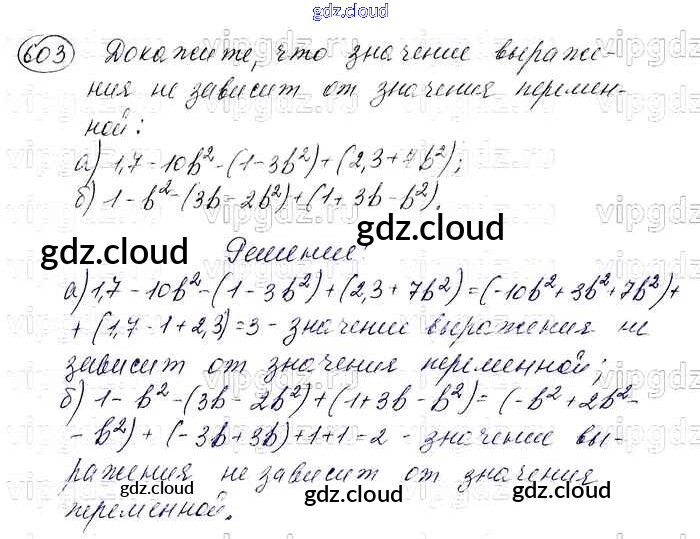 gdz.cloud
603 Докажите, что значение выраже-
ния не зависит от значения перемен-
ной:
а) 1,7 - 10b² - (1 - 3b²) + (2,3 + 7b²);
б) 1 - b² - (3b - 2b²) + (1 + 3b - b²).
gdz.cloud Решение: gdz.cloud
а) 1,7 - 10b² - (1 - 3b²) + (2,3 + 7b²) = (-10b² + 3b² + 7b²) +
+ (1,7 - 1 + 2,3) = 3 - значение выражения не
зависит от значения переменной;
б) 1 - b² - (3b - 2b²) + (1 + 3b - b²) = (-b² + 2b² -
- b²) + (-3b + 3b) + 1 + 1 = 2 - значение вы-
ражения не зависит от значения
gdz.cloud gdz.cloud gdz.cloud
переменной.